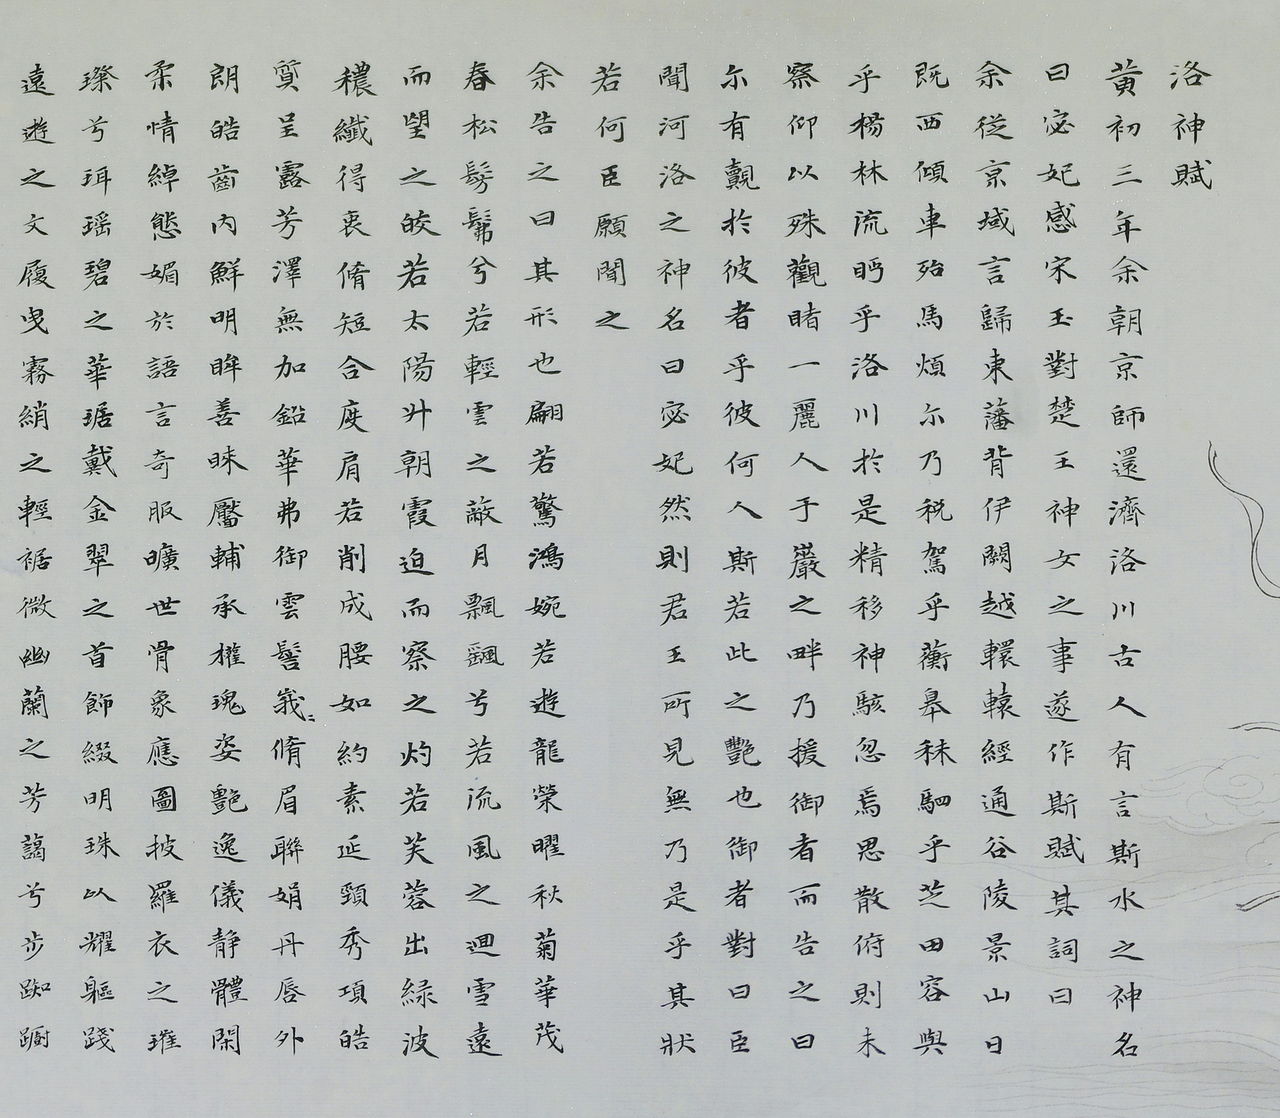 洛神賦
黃初三年余朝京師還濟洛川古人有言斯水之神名
曰宓妃感宋玉對楚王神女之事遂作斯賦其詞曰
余從京域言歸東藩背伊闕越轘轅經通谷陵景山日
既西傾車殆馬煩尓乃稅駕乎蘅皋秣駟乎芝田容與
乎楊林流眄乎洛川於是精移神駭忽焉思散俯則未
察仰以殊觀睹一麗人于巖之畔乃援御者而告之曰
尓有覿於彼者乎彼何人斯若此之豔也御者對曰臣
聞河洛之神名曰宓妃然則君王所見無乃是乎其狀
若何臣願聞之
余告之曰其形也翩若驚鴻婉若遊龍榮曜秋菊華茂
春松髣髴兮若輕雲之蔽月飄颻兮若流風之迴雪遠
而望之皎若太陽升朝霞迫而察之灼若芙蓉出綠波
穠纖得衷脩短合度肩若削成腰如約素延頸秀項皓
質呈露芳澤無加鉛華弗御雲髻峩〻脩眉聯娟丹唇外
朗皓齒內鮮明眸善睞靨輔承權瑰姿艷逸儀靜體閑
柔情綽態媚於語言奇服曠世骨象應圖披羅衣之璀
璨兮珥瑶碧之華琚戴金翠之首飾綴明珠以耀軀踐
遠遊之文履曳霧綃之輕裾微幽蘭之芳藹兮步踟躕